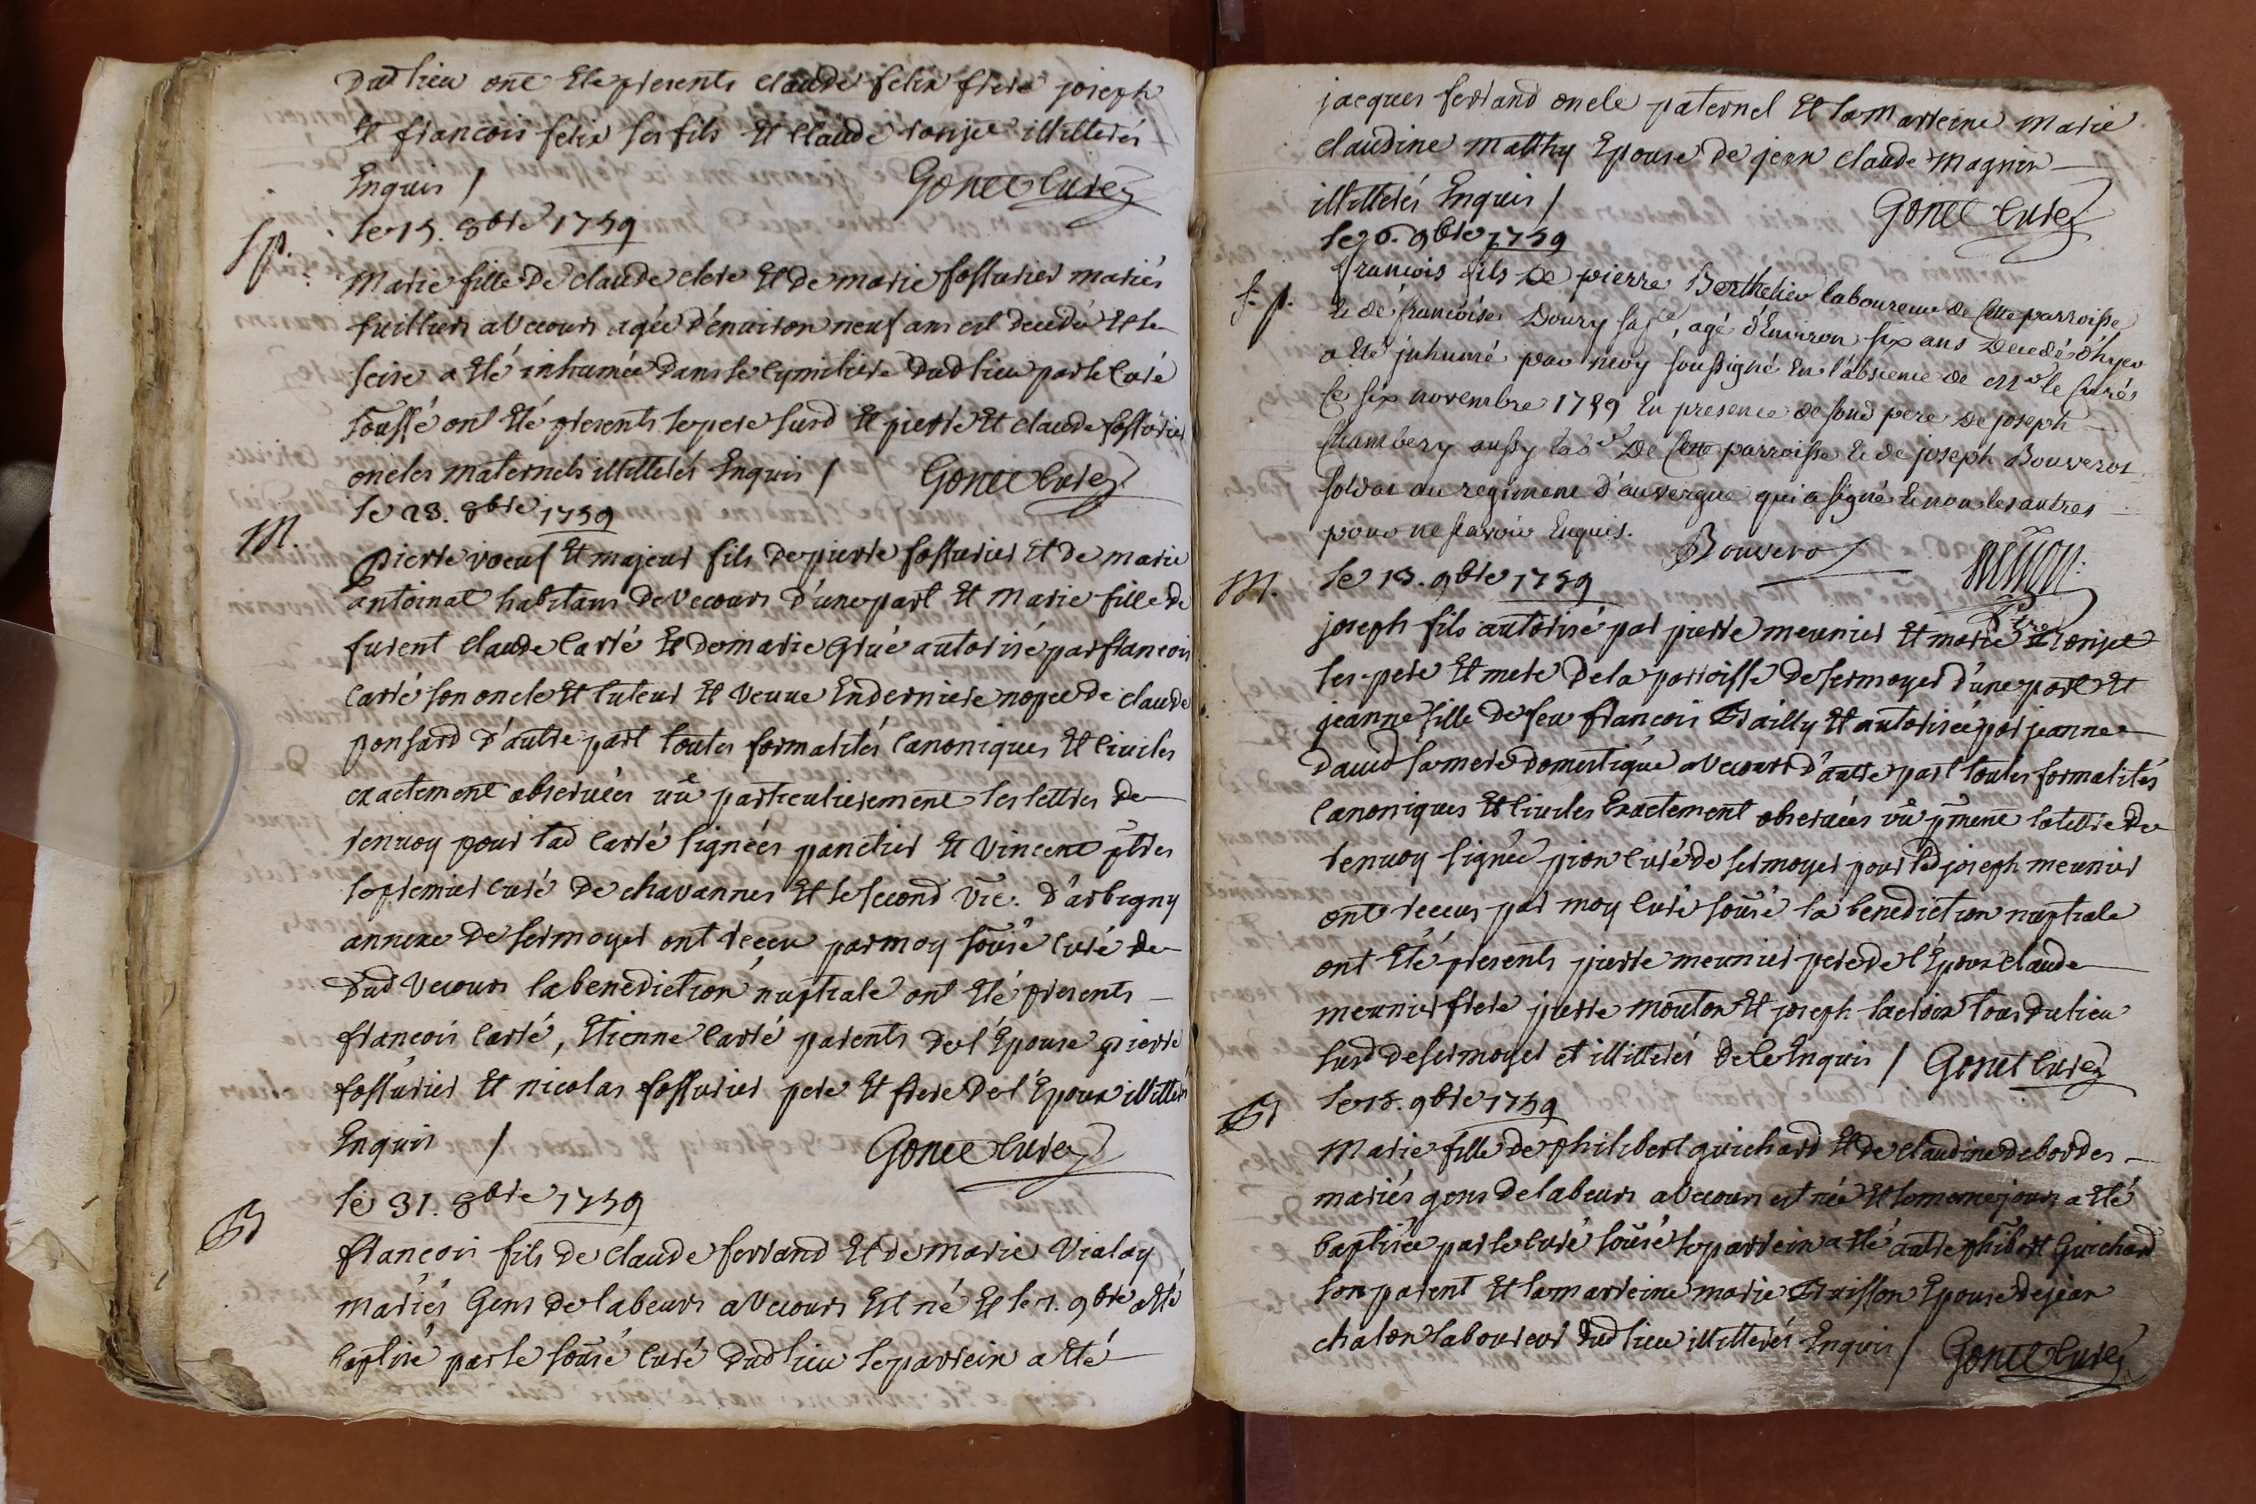 dud lieu ont ete presents claude felix frere joseph
et francois felix ses fils et claude ronjet illitterés
Enquis /
Gonet Curé
Sp.
le 15. 8bre 1759
Marie fille de claude clere et de marie fossurier mariés
fuilliers a Vecours agée d'enuiron neuf ans est decedée et le
soire a été inhumée dans le cymitiere dud lieu par le curé
soussé ont été presents le pere susd et pierre et claude fossurier
oncles maternels illitterés Enquis /
Gonet Curé
M.
le 23. 8bre 1759
pierre voeuf et majeur fils de pierre fossurier et de marie
antoinat habitans de Vecours d'une part et Marie fille de
furent claude Carré et de marie Grué autorisé par francois
Carré son oncle et tuteur et Veuue En derniere nopce de claude
ponsard d'autre part toutes formalités Canoniques et Ciuiles
exactement obseruées vû particulierement les lettres de
renuoy pour lad Carré signées panetier et Vincent ptres
le premier curé de chavannes et le second Vic. d'arbigny
annexe de sermoyer ont receu par moy soûsé Curé de
dud Vecours la benediction nuptiale ont été presents
francois Carré, Etienne Carré parents de l'Epouse pierre
fossurier et nicolas fossurier pere et frere de l'Epoux illitterés
Enquis /
Gonet Curé
B
le 31. 8bre 1759
francois fils de Claude ferrand et de marie Vialay
mariés Gens de labeurs a Vecours Est né et le 1. 9bre a été
baptisé par le soûsé Curé dud lieu le parrein a été
jacques ferrand oncle paternel et la marreine Marie
claudine Matthy Epouse de jean claude Magnin
illitterés Enquis /
Gonet Curé
le 6. 9bre 1759
S. p.
françois fils de pierre Berthelier laboureur de cette parroisse
et de françoise Doury sa fe, agé d'Environ six ans decedé d'hyer
a été inhumé par moy soussigné En l'absence de Mr le Curé
Ce six novembre 1759 En presence de sond pere de joseph
Chambery aussy labr de Cette parroisse et de joseph Bouveros
soldat au regiment d'auvergne qui a signé et non les autres
pour ne sçavoir Enquis.
Bouveros
M.
le 13. 9bre 1759
joseph fils autorisé par pierre meunier et marie ronjet
ses pere et mere de la parroisse de sermoyer d'une part et
jeanne fille de feu francois Brailly et autorisée par jeanne
dauid sa mere domestique a Vecours d'autre part toutes formalités
Canoniques et Ciuiles Exactement obseruées vû pment la lettre de
renuoy signée pion Curé de sermoyer pour led joseph meunier
ont receus par moy Curé soûsé la benediction nuptiale
ont été presents pierre meunier pere de l'Epoux claude
meunier frere pierre mouton et joseph lacroix tous du lieu
susd de sermoyer et illitterés de ce Enquis /
Gonet Curé
B
le 15. 9bre 1759
Marie fille de philibert guichard et de claudine debordes
mariés gens de labeurs a Vecours est née et le meme jours a été
baptisée par le curé soûsé le parrein a été autre philbert Guichard
son parent et la marreine marie Buisson Epouse de jean
chalon laboureur dud lieu illitterés Enquis /
Gonet Curé